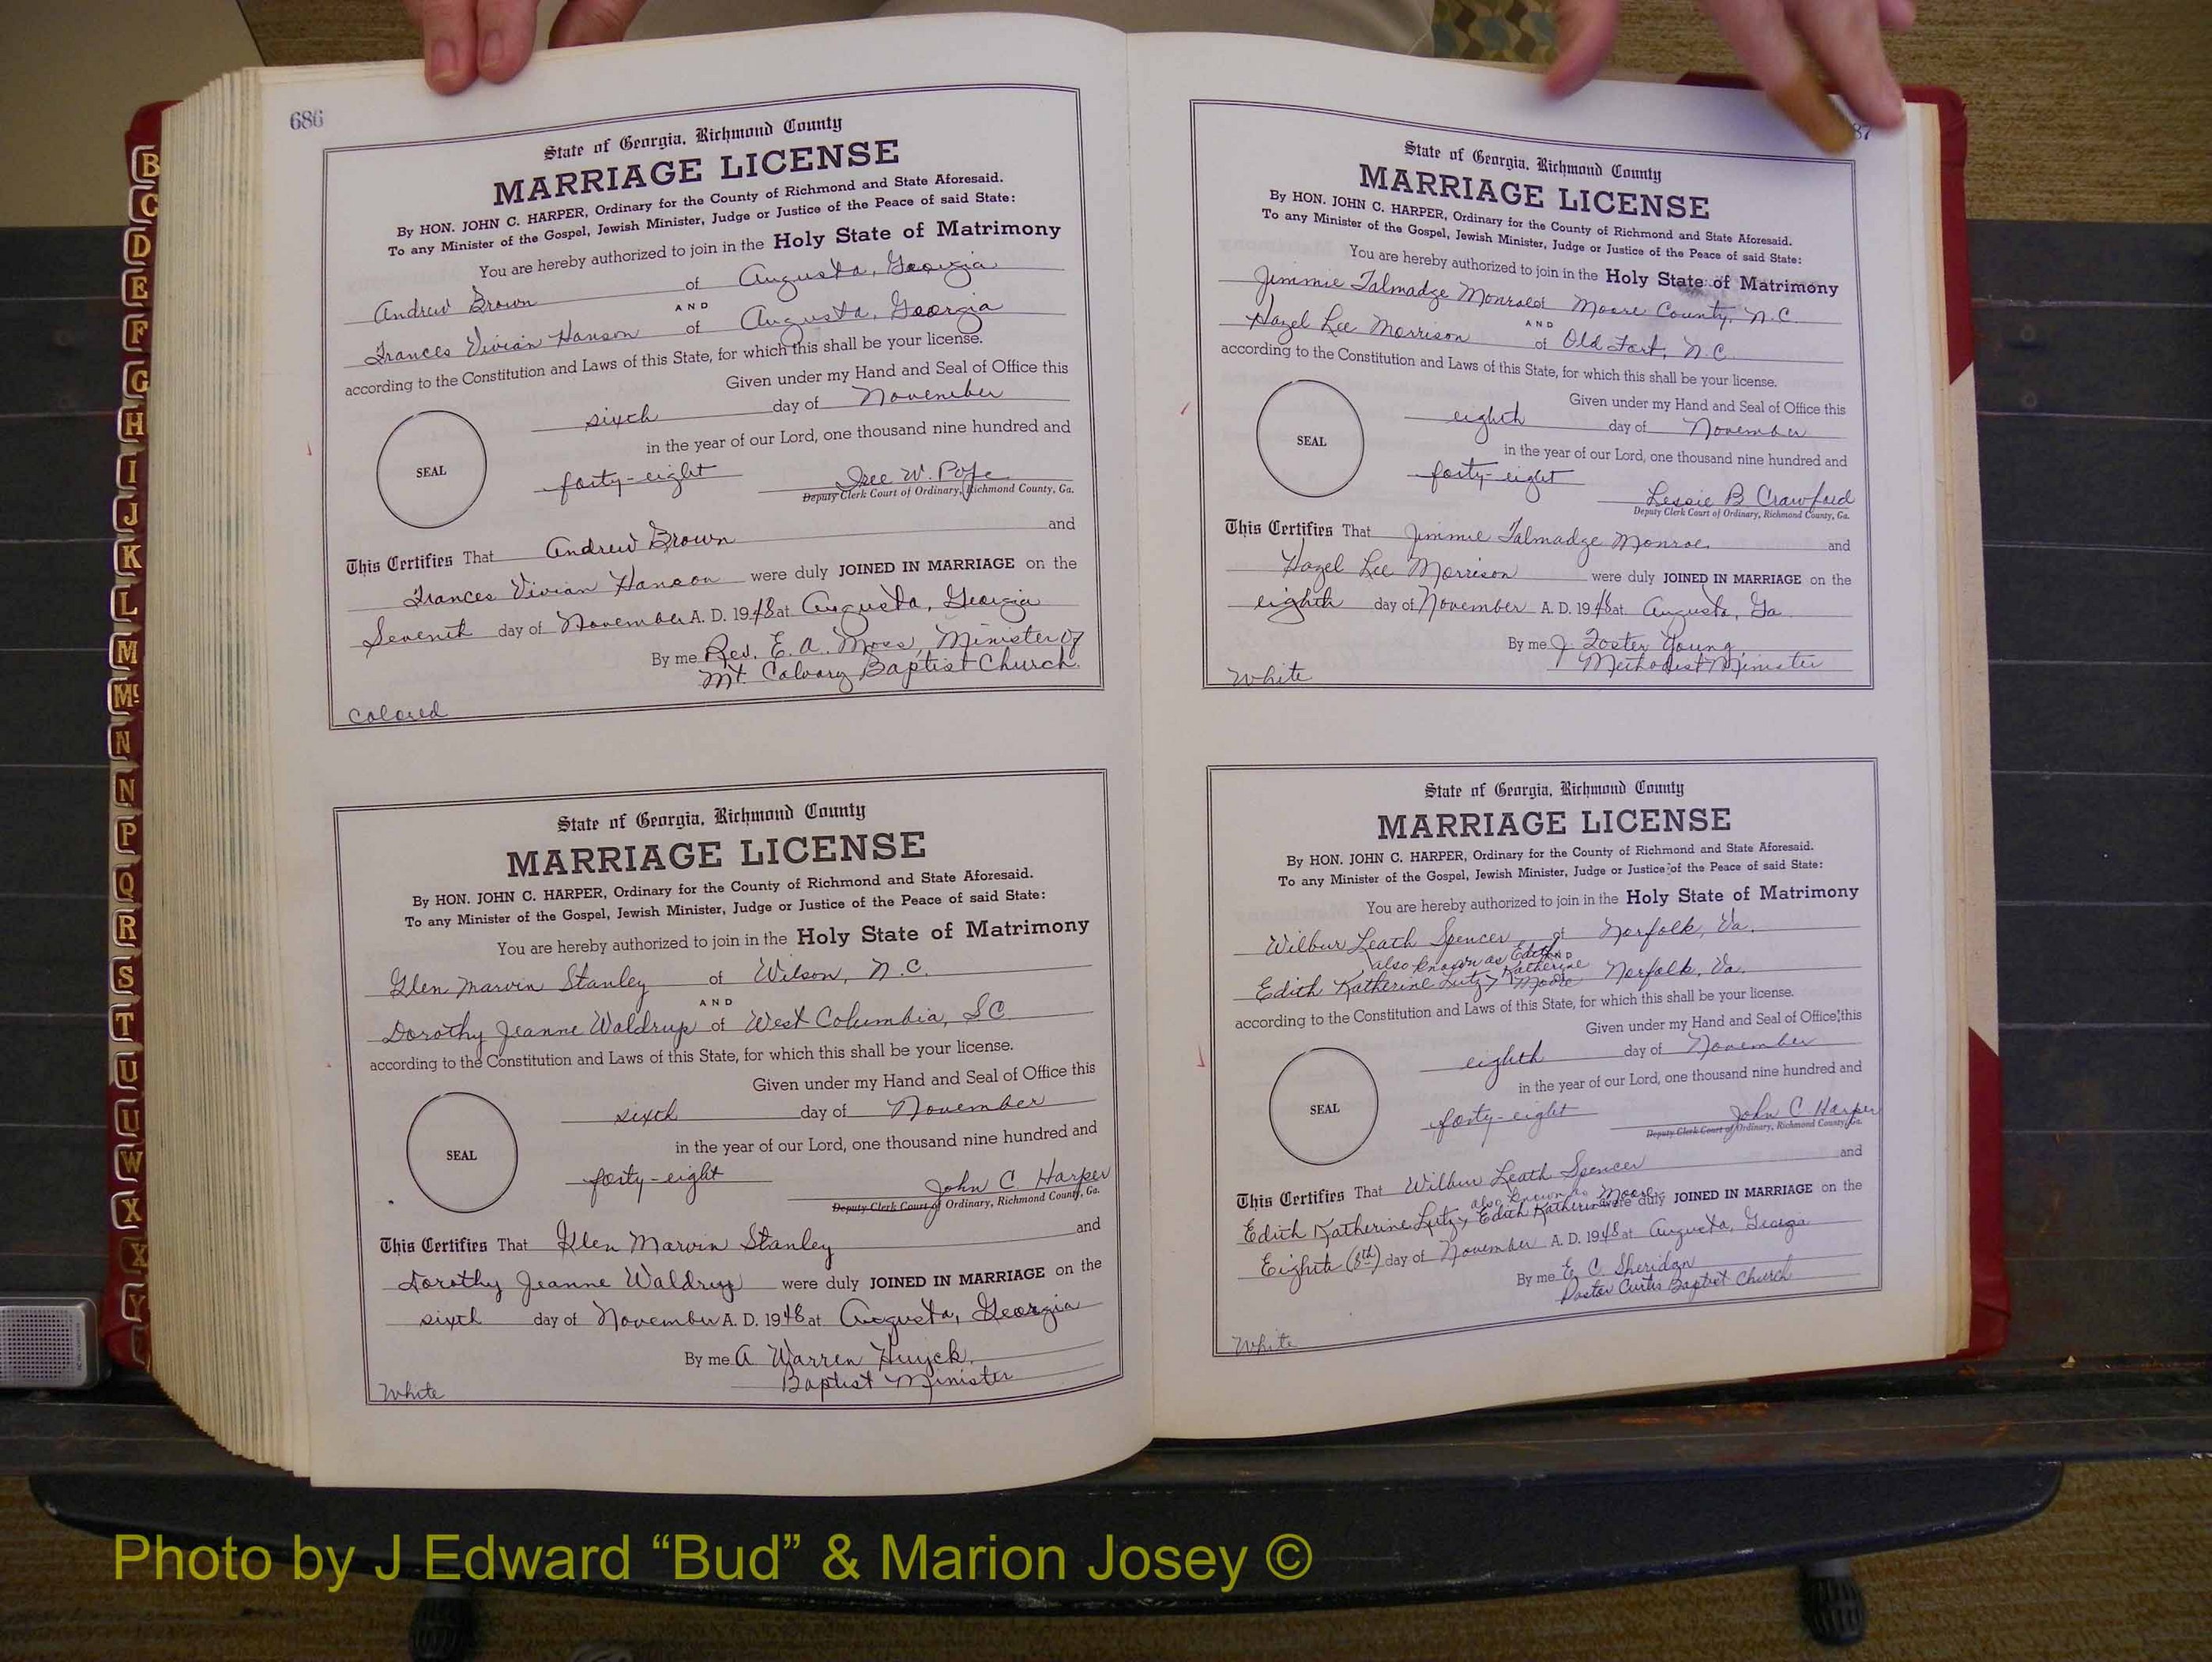 686
State of Georgia, Richmond County
MARRIAGE LICENSE
By HON. JOHN C. HARPER, Ordinary for the County of Richmond and State Aforesaid.
To any Minister of the Gospel, Jewish Minister, Judge or Justice of the Peace of said State:
You are hereby authorized to join in the Holy State of Matrimony
Andrew Brown of Augusta, Georgia
AND
Frances Vivian Hanson of Augusta, Georgia
according to the Constitution and Laws of this State, for which this shall be your license.
Given under my Hand and Seal of Office this
sixth day of November
in the year of our Lord, one thousand nine hundred and
SEAL
forty-eight W. Pope
Deputy Clerk Court of Ordinary, Richmond County, Ga.
This Certifies That Andrew Brown and
Frances Vivian Hanson were duly JOINED IN MARRIAGE on the
Seventh day of November A. D. 1948 at Augusta, Georgia
By me Rev. E. A. Moss, Minister of
Mt. Calvary Baptist Church
Colored
State of Georgia, Richmond County
MARRIAGE LICENSE
By HON. JOHN C. HARPER, Ordinary for the County of Richmond and State Aforesaid.
To any Minister of the Gospel, Jewish Minister, Judge or Justice of the Peace of said State:
You are hereby authorized to join in the Holy State of Matrimony
Glen Marvin Stanley of Wilson, N.C.
AND
Dorothy Jeanne Waldrup of West Columbia, SC
according to the Constitution and Laws of this State, for which this shall be your license.
Given under my Hand and Seal of Office this
sixth day of November
in the year of our Lord, one thousand nine hundred and
SEAL
forty-eight John C. Harper
Deputy Clerk Court of Ordinary, Richmond County, Ga.
This Certifies That Glen Marvin Stanley and
Dorothy Jeanne Waldrup were duly JOINED IN MARRIAGE on the
sixth day of November A. D. 1948 at Augusta, Georgia
By me A. Warren Huyck.
Baptist Minister
White
87
State of Georgia, Richmond County
MARRIAGE LICENSE
By HON. JOHN C. HARPER, Ordinary for the County of Richmond and State Aforesaid.
To any Minister of the Gospel, Jewish Minister, Judge or Justice of the Peace of said State:
You are hereby authorized to join in the Holy State of Matrimony
Jimmie Talmadge Monroe of Moore County, N.C.
AND
Hazel Lee Morrison of Old Fort, N.C.
according to the Constitution and Laws of this State, for which this shall be your license.
Given under my Hand and Seal of Office this
eighth day of November
SEAL
in the year of our Lord, one thousand nine hundred and
forty-eight Lessie B. Crawford
Deputy Clerk Court of Ordinary, Richmond County, Ga.
This Certifies That Jimmie Talmadge Monroe and
Hazel Lee Morrison were duly JOINED IN MARRIAGE on the
eighth day of November A. D. 1948 at Augusta, Ga
By me J. Foster Young,
Methodist Minister
White
State of Georgia, Richmond County
MARRIAGE LICENSE
By HON. JOHN C. HARPER, Ordinary for the County of Richmond and State Aforesaid.
To any Minister of the Gospel, Jewish Minister, Judge or Justice of the Peace of said State:
You are hereby authorized to join in the Holy State of Matrimony
Wilbur Leath Spencer of Norfolk, Va.
also known as Edith AND
Edith Katherine Lutz, Katherine Moore Norfolk, Va.
according to the Constitution and Laws of this State, for which this shall be your license.
Given under my Hand and Seal of Office this
eighth day of November
in the year of our Lord, one thousand nine hundred and
SEAL
forty-eight John C Harper
Deputy Clerk Court of Ordinary, Richmond County, Ga.
This Certifies That Wilbur Leath Spencer and
also known as Moore
Edith Katherine Lutz, Edith Katherine were duly JOINED IN MARRIAGE on the
Eighth (8th) day of November A. D. 1948 at Augusta, Georgia
By me E. C. Sheridan
Pastor Curtis Baptist Church
White
B
C
D
E
F
G
H
I
J
K
L
M
Mc
N
N
P
Q
R
S
T
U
U
W
X
X
Y
Photo by J Edward “Bud” & Marion Josey ©